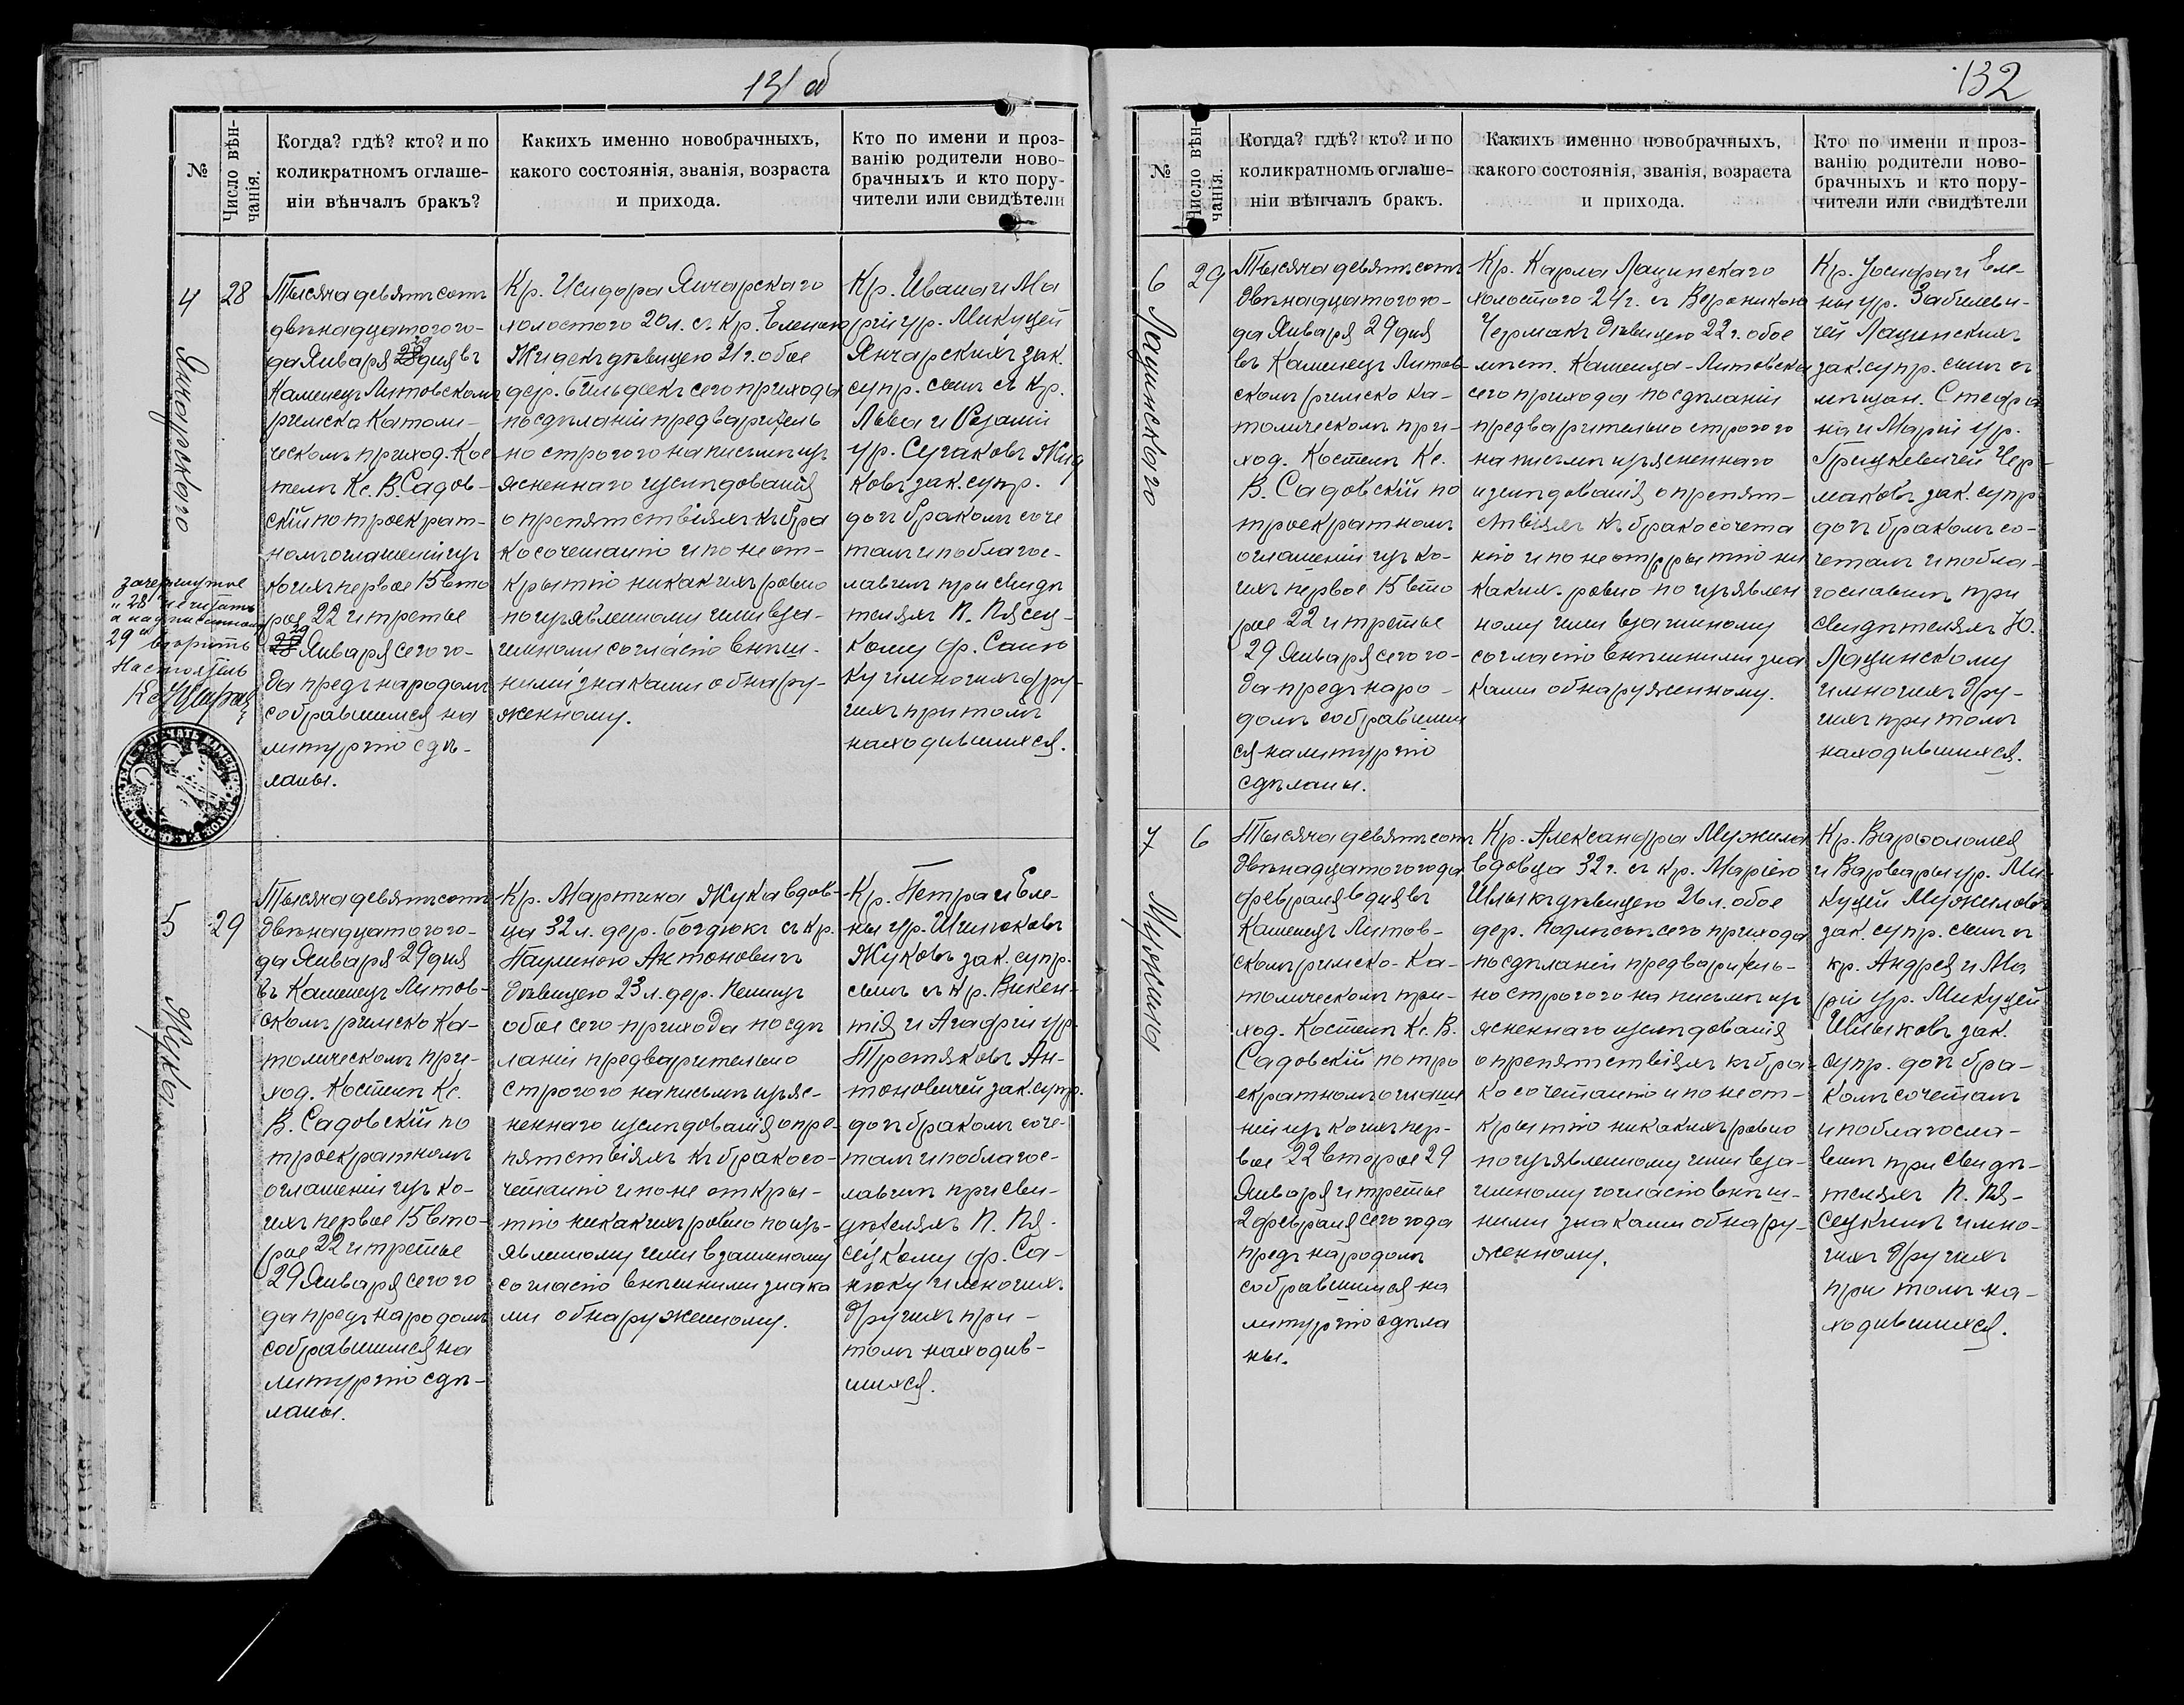 131 об
№
Число вѣн-
чанія.
Когда? гдѣ? кто? и по
коликратномъ оглаше-
ніи вѣнчалъ бракъ?
Какихъ именно новобрачныхъ,
какого состоянія, званія, возраста
и прихода.
Кто по имени и проз-
ванію родители ново-
брачныхъ и кто пору-
чители или свидѣтели
4
Янчарскаго
28
Тысяча девятьсотъ
двѣнадцатого го-
да Января 28 29 дня въ
Каменецъ Литовскомъ
римско Католи-
ческомъ приход. Кос
телѣ Кс. В. Садов-
скій по троекрат-
номъ оглашеніи изъ
коихъ первое 15 вто
рое 22 и третье
28 29 Января сего го-
да предъ народомъ
собравшимся на
литургію сдѣ-
ланы.
зачеркнутое
"28" не читать
а надписанному
29 вѣрить
Настоятель
Кр. Исидора Янчарскаго
холостого 20 л. съ Кр. Еленою
Жидекъ дѣвицею 21 г. обое
дер. Бѣльдеекъ сего прихода
по сдѣланіи предваритель
но строгого на письмѣ изъ
ясненнаго изслѣдованія
о препятствіяхъ къ бра
косочетанію и по не от-
крытію никакихъ ровно
по изъявленному ими вза-
имному согласію внѣш-
ними знаками обнару-
женному.
Кр. Ивана и Ма
ріи ур. Микуцей
Янчарскихъ зак.
супр. сынъ съ Кр.
Льва и Розаліи
ур. Сугаковъ Жид
ковъ зак. супр.
дочъ бракомъ соче
талъ и поблагос-
лавилъ при свидѣ
теляхъ П. Пясец-
кому Ф. Саню
ку и многихъ дру-
гихъ при томъ
находившихся.
5
Жука
29
Тысяча девятьсотъ
двѣнадцатого го-
да Января 29 дня
въ Каменецъ Литов-
скомъ римско Ка-
толическомъ при-
ход. Костелѣ Кс.
В. Садовскій по
троекратномъ
оглашеніи изъ ко-
ихъ первое 15 вто-
рое 22 и третье
29 Января сего го
да предъ народомъ
собравшимся на
литургію сдѣ-
ланы.
Кр. Мартина Жука вдов-
ца 32 л. дер. Богдюкъ съ Кр.
Паулиною Антоновичъ
дѣвицею 23 л. дер. Пелищъ
обое сего прихода по сдѣ
ланіи предварительно
строгого на письмѣ изъяс-
неннаго изслѣдованія о пре-
пятствіяхъ къ бракосо-
четанію и по не откры-
тію никакихъ ровно по изъ-
явленному ими взаимному
согласію внѣшними знака
ми обнаруженному.
Кр. Петра и Еле-
ны ур. Шишоковъ
Жуковъ зак. супр.
сынъ съ Кр. Викен-
тія и Агафіи ур.
Третяковъ Ан-
тоновичей зак. супр.
дочъ бракомъ соче-
талъ и поблагос-
лавилъ при сви-
дѣтеляхъ П. Пя-
сецкому Ф. Са-
нюку и многихъ
другихъ при-
томъ находив-
шихся.
132
№
Число вѣн-
чанія.
Когда? гдѣ? кто? и по
коликратномъ оглаше-
ніи вѣнчалъ бракъ.
Какихъ именно новобрачныхъ,
какого состоянія, званія, возраста
и прихода.
Кто по имени и проз-
ванію родители ново-
брачныхъ и кто пору-
чители или свидѣтели
6
Лацинскаго
29
Тысяча девятьсотъ
двѣнадцатого го-
да Января 29 дня
въ Каменецъ Литов-
скомъ римско Ка-
толическомъ при-
ход. Костелѣ Кс.
В. Садовскій по
троекратномъ
оглашеніи изъ ко-
ихъ первое 15 вто
рое 22 и третье
29 Января сего го-
да предъ наро-
домъ собравшим
ся на литургію
сдѣланы.
Кр. Карла Лацинскаго
холостого 24 г. съ Вероникою
Чермакъ дѣвицею 22 г. обое
мѣст. Каменца-Литовска
сего прихода по сдѣланіи
предварительно строгого
на письмѣ изъясненнаго
изслѣдованія о препят-
ствіяхъ къ бракосочета
нію и по не открытію ни
какихъ ровно по изъявлен
ному ими взаимному
согласію внѣшними зна
ками обнаруженному.
Кр. Іосифа и Еле-
ны ур. Забилеви-
чей Лацинскихъ
зак. супр. сынъ съ
мѣщан. Стефа
на и Маріи ур.
Грицкевичей Чер-
маковъ зак. супр.
дочъ бракомъ со-
четалъ и побла-
гославилъ при
свидѣтеляхъ Ю.
Лацинскому
и многихъ дру-
гихъ при томъ
находившихся.
7
Мужила
6
Тысяча девятьсотъ
двѣнадцатого года
февраля 6 дня въ
Каменецъ Литов-
скомъ римско-Ка-
толическомъ при-
ход. Костелѣ Кс. В.
Садовскій по тро
екратномъ оглаше
ніи изъ коихъ пер-
вое 22 второе 29
Января и третье
2 февраля сего года
предъ народомъ
собравшимся на
литургію сдѣла
ны.
Кр. Александра Мужила
вдовца 32 г. съ Кр. Маріею
Шлыкъ дѣвицею 26 л. обое
дер. Подлѣсъ сего прихода
по сдѣланіи предваритель-
но строгого на письмѣ изъ
ясненнаго изслѣдованія
о препятствіяхъ къ бра-
косочетанію и по не от-
крытію никакихъ ровно
по изъявленному ими вза-
имному согласію внѣш-
ними знаками обнару-
женному.
Кр. Варѳоломея
и Варвары ур. Ми-
куцей Мужиловъ
зак. супр. сынъ съ
кр. Андрея и Ма
ріи ур. Микуцей
Шлыковъ зак.
супр. дочъ бра-
комъ сочеталъ
и поблагосла-
вилъ при свидѣ-
теляхъ П. Пя-
сецкимъ и мно-
гихъ другихъ
при томъ на-
ходившихся.